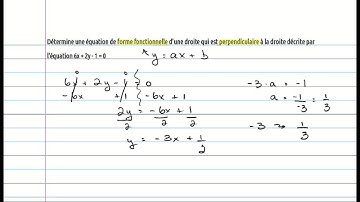 Détermine une équation de forme fonctionnelle d'une droite qui est perpendiculaire à la droite décrite par
l'équation 6x + 2y - 1 = 0
* y = ax + b
6x + 2y - 1 = 0
-6x +1 -6x + 1
2y/2 = -6x/2 + 1/2
y = -3x + 1/2
-3 · a = -1
a = -1/-3 = 1/3
-3 → 1/3